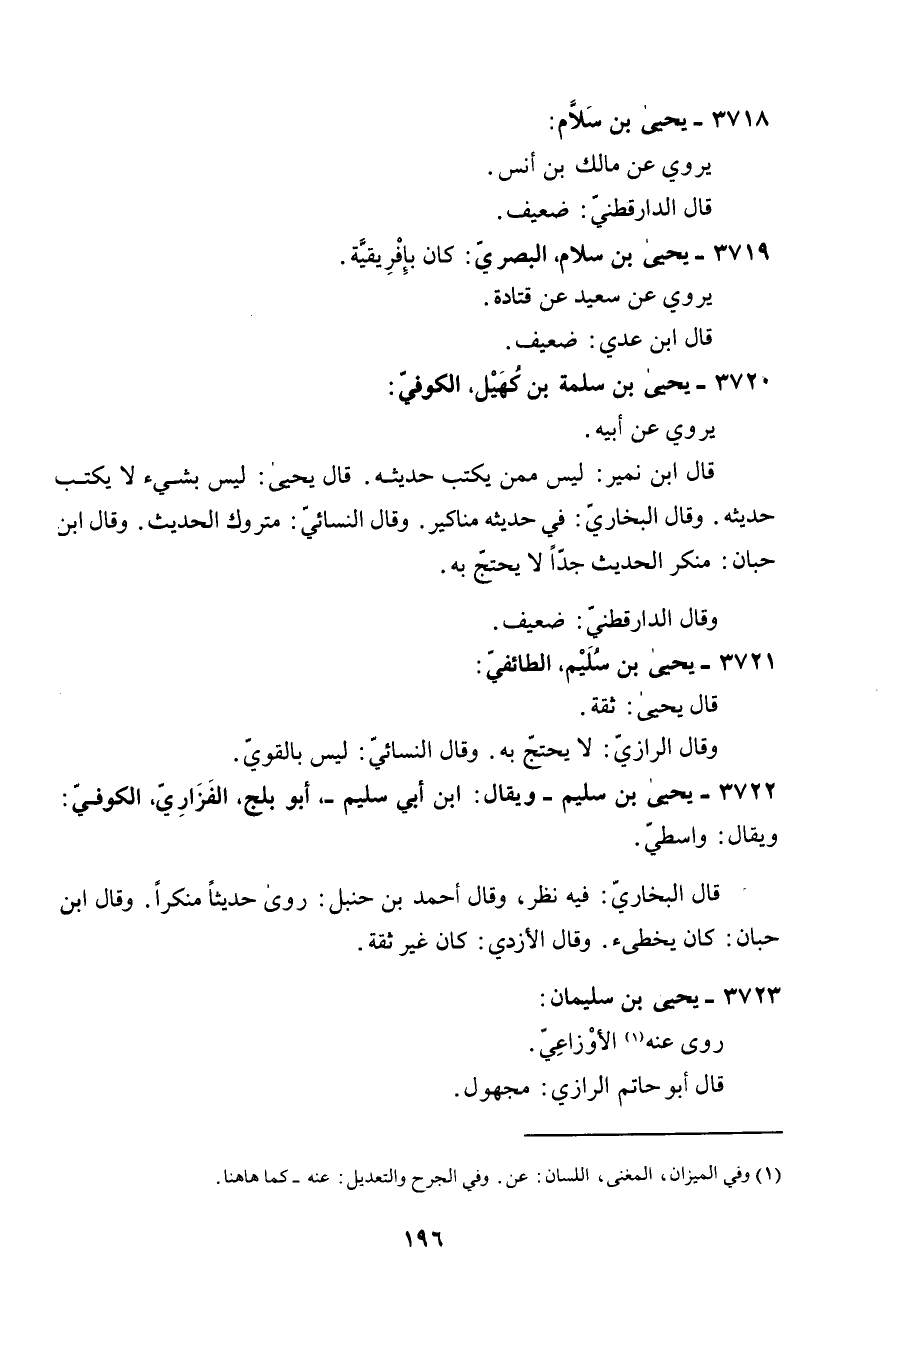 ٣٧١٨ ـ يحيىٰ بن سَلاَّم:
يروي عن مالك بن أنس.
قال الدارقطنيّ: ضعيف.
٣٧١٩ ـ يحيىٰ بن سلام، البصريّ: كان بإِفْرِيقيَّة.
يروي عن سعيد عن قتادة.
قال ابن عدي: ضعيف.
٣٧٢٠ ـ يحيىٰ بن سلمة بن كُهَيْل، الكوفيّ:
يروي عن أبيه.
قال ابن نمير: ليس ممن يكتب حديثه. قال يحيىٰ: ليس بشيء لا يكتب
حديثه. وقال البخاريّ: في حديثه مناكير. وقال النسائيّ: متروك الحديث. وقال ابن
حبان: منكر الحديث جدّاً لا يحتجّ به.
وقال الدارقطنيّ: ضعيف.
٣٧٢١ ـ يحيىٰ بن سُلَيْم، الطائفيّ:
قال يحيىٰ: ثقة.
وقال الرازيّ: لا يحتجّ به. وقال النسائيّ: ليس بالقويّ.
٣٧٢٢ ـ يحيىٰ بن سليم ـ ويقال: ابن أبي سليم ـ، أبو بلج، الفَزَارِيّ، الكوفيّ:
ويقال: واسطيّ.
قال البخاريّ: فيه نظر، وقال أحمد بن حنبل: روىٰ حديثاً منكراً. وقال ابن
حبان: كان يخطىء. وقال الأزدي: كان غير ثقة.
٣٧٢٣ ـ يحيى بن سليمان:
روى عنه(١) الأوْزاعِيّ.
قال أبو حاتم الرازي: مجهول.
(١) وفي الميزان، المغنى، اللسان: عن. وفي الجرح والتعديل: عنه ـ كما هاهنا.
١٩٦